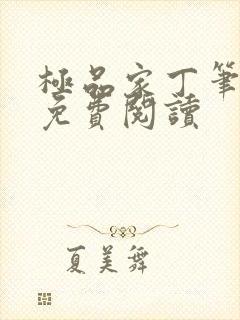 極品家丁筆
免費閱讀
夏美舞